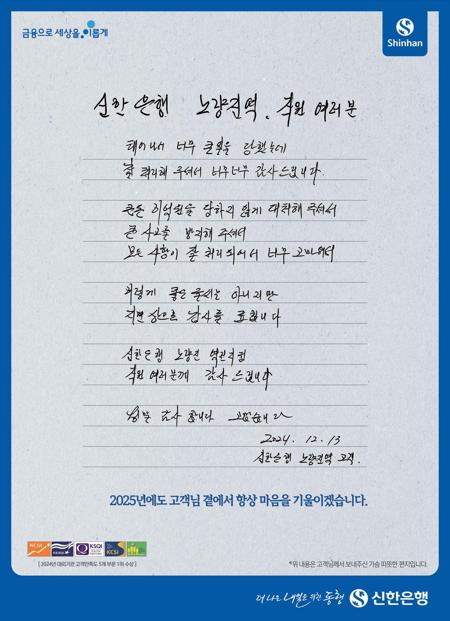 금융으로 세상을 이롭게
Shinhan
신한은행 노량진역. 직원 여러분
태어나서 너무 큰일을 당했는데
잘 처리해 주셔서 너무너무 감사드립니다.
큰돈 피해를 당하지 않게 대처해 주셔서
큰 사고를 방지해 주셔서
모든 사항이 잘 처리되어서 너무 고마워서
이렇게 좋은 글씨는 아니지만
지면상으로 감사를 표합니다
신한은행 노량진 역 지점
직원 여러분께 감사드립니다
정말 감사합니다 고맙습니다
2024. 12. 13
신한은행 노량진역 고객.
2025년에도 고객님 곁에서 항상 마음을 기울이겠습니다.
KCSI KSQI KCSI
[ 2024년 대외기관 고객만족도 5개 부문 1위 수상 ]
*위 내용은 고객님께서 보내주신 가슴 따뜻한 편지입니다.
더 나은 내일을 위한 동행 신한은행